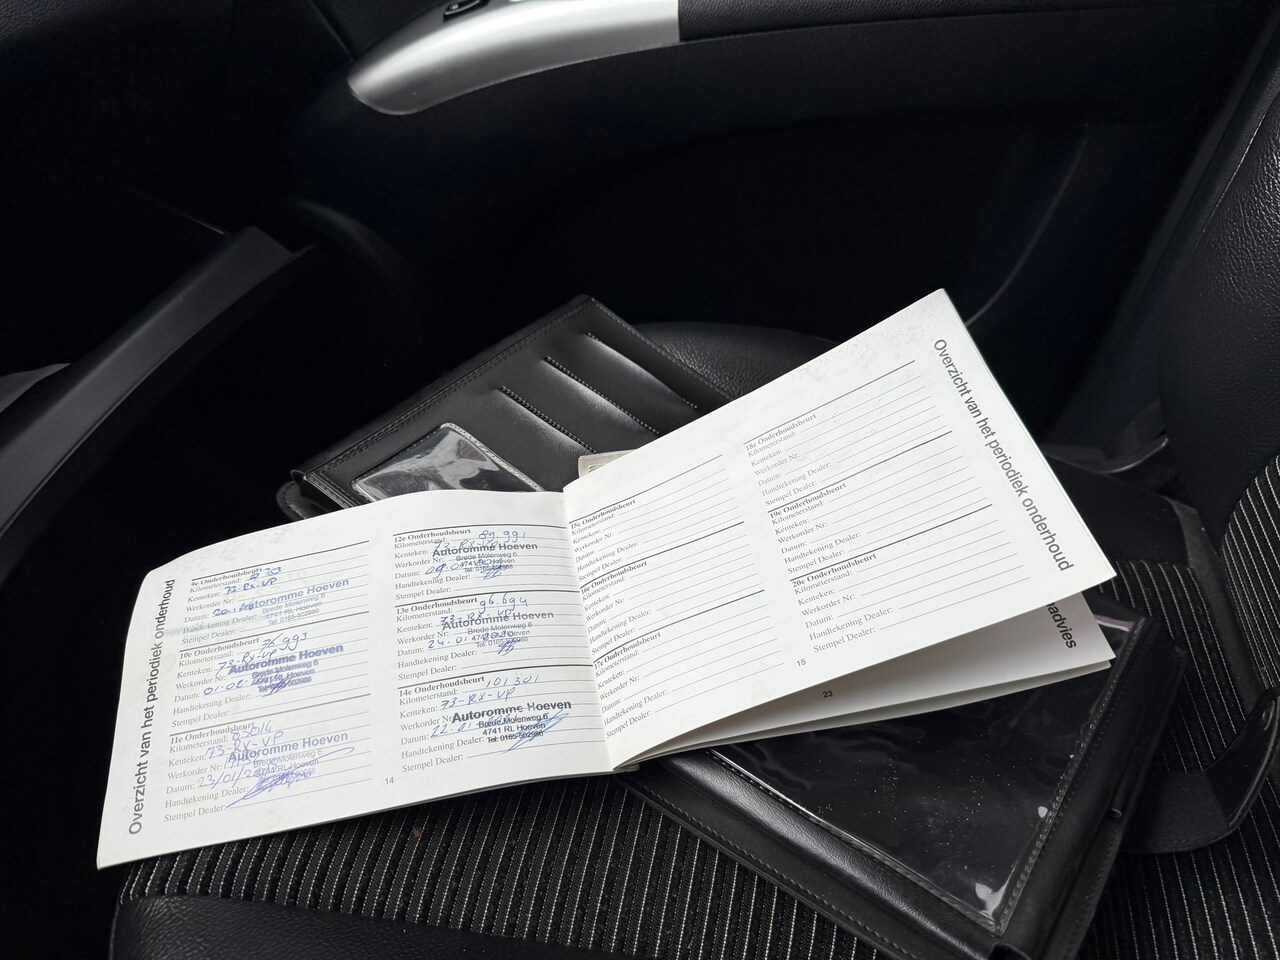 Overzicht van het periodiek onderhoud
9e Onderhoudsbeurt
Kilometerstand:
Kenteken: 73-RX-VP
Werkorder Nr:
Datum:
Autoromme Hoeven
Brede Molenweg 6
4741 RL Hoeven
Tel: 0165-502986
Handtekening Dealer:
Stempel Dealer:
10e Onderhoudsbeurt
Kilometerstand: 76.993
Kenteken: 73-RX-VP
Werkorder Nr:
Autoromme Hoeven
Brede Molenweg 6
4741 RL Hoeven
Tel: 0165-502986
Datum: 01-02-
Handtekening Dealer:
Stempel Dealer:
11e Onderhoudsbeurt
Kilometerstand: 83014
Kenteken: 73-RX-VP
Werkorder Nr:
Autoromme Hoeven
Brede Molenweg 6
4741 RL Hoeven
Datum: 23/01/
Handtekening Dealer:
Stempel Dealer:
12e Onderhoudsbeurt
Kilometerstand: 89.991
Kenteken: 73-RX-VP
Werkorder Nr:
Autoromme Hoeven
Brede Molenweg 6
4741 RL Hoeven
Tel: 0165-502986
Datum:
Handtekening Dealer:
Stempel Dealer:
13e Onderhoudsbeurt
Kilometerstand: 96.694
Kenteken: 73-RX-VP
Werkorder Nr:
Autoromme Hoeven
Brede Molenweg 6
4741 RL Hoeven
Tel: 0165-502986
Datum: 24-01-
Handtekening Dealer:
Stempel Dealer:
14e Onderhoudsbeurt
Kilometerstand: 101301
Kenteken: 73-RX-VP
Werkorder Nr:
Autoromme Hoeven
Brede Molenweg 6
4741 RL Hoeven
Tel: 0165-502986
Datum: 22-01-
Handtekening Dealer:
Stempel Dealer:
14
15e Onderhoudsbeurt
Kilometerstand:
Kenteken:
Werkorder Nr:
Datum:
Handtekening Dealer:
Stempel Dealer:
16e Onderhoudsbeurt
Kilometerstand:
Kenteken:
Werkorder Nr:
Datum:
Handtekening Dealer:
Stempel Dealer:
17e Onderhoudsbeurt
Kilometerstand:
Kenteken:
Werkorder Nr:
Datum:
Handtekening Dealer:
Stempel Dealer:
18e Onderhoudsbeurt
Kilometerstand:
Kenteken:
Werkorder Nr:
Datum:
Handtekening Dealer:
Stempel Dealer:
19e Onderhoudsbeurt
Kilometerstand:
Kenteken:
Werkorder Nr:
Datum:
Handtekening Dealer:
Stempel Dealer:
20e Onderhoudsbeurt
Kilometerstand:
Kenteken:
Werkorder Nr:
Datum:
Handtekening Dealer:
Stempel Dealer:
15
Overzicht van het periodiek onderhoud
23
advies